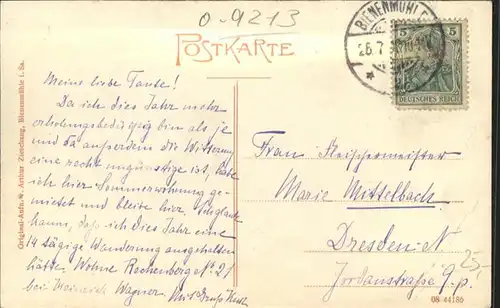 0-9213
POSTKARTE
BIENENMÜHLE
26.7.
5 5
DEUTSCHES REICH
Original-Aufn. v. Arthur Zinterhang, Bienenmühle i. Sa.
Meine liebe Tante!
Da ich dies Jahr mehr
erholungsbedürftig bin als je
und da ausserdem die Witterung
eine recht ungünstige ist, habe
ich hier Sommerwohnung ge-
mietet und bleibe hier.
kaum, dass ich dies Jahr eine
14 tägige Wanderung ausgehalten
hätte. Wohne Rechenberg No 21
bei Heinrich Wagner. Mit Gruss
Frau Fleischermeister
Marie Mittelbach
Dresden-N
Jordanstraße 9.p.
25,
08 44186